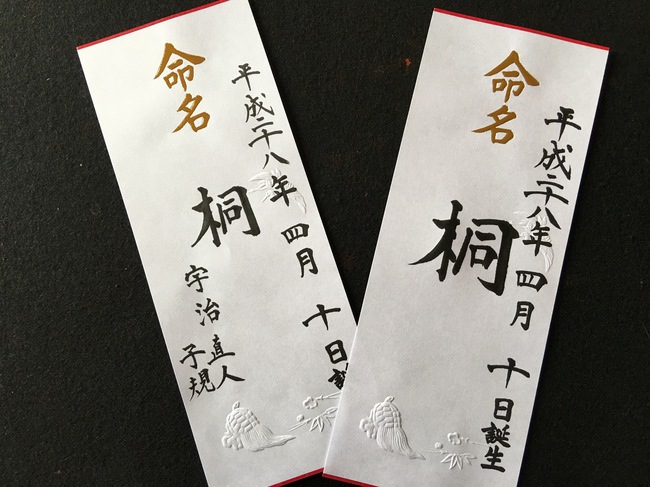 平成二十八年 四月 十日誕
命名
桐
宇治
直人
子規
平成二十八年 四月 十日誕生
命名
桐